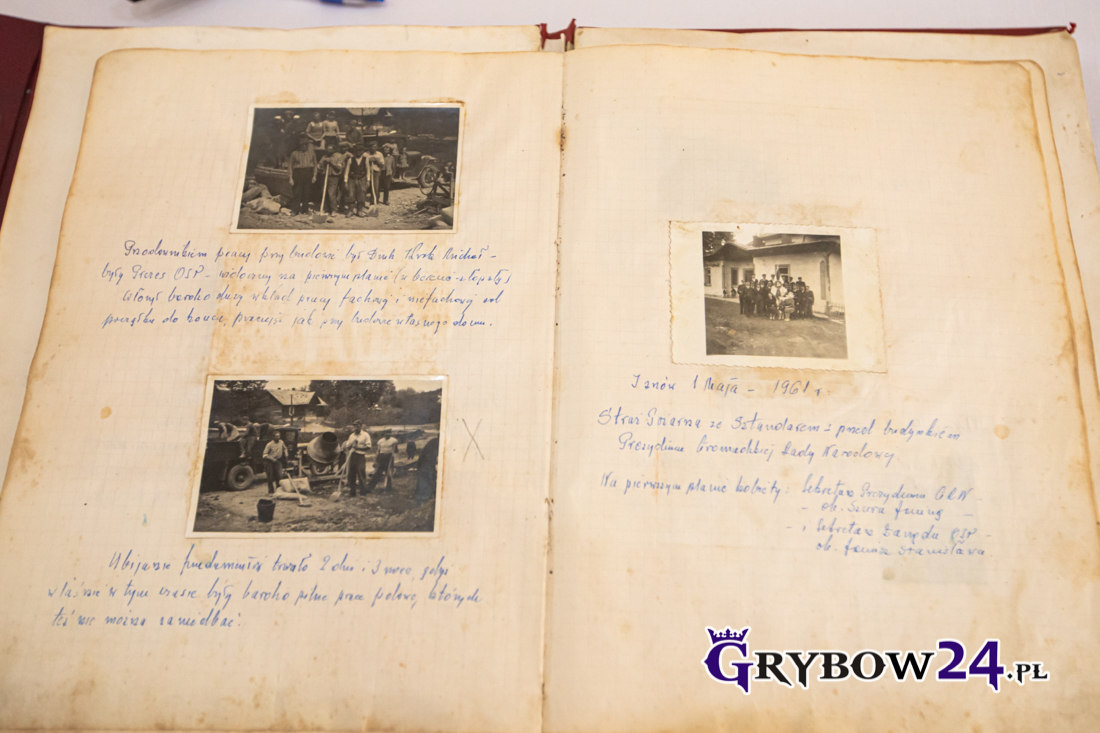 Przodownikiem pracy przy budowie był Druh Michał -
były Prezes OSP - widoczny na pierwszym planie (z łopatą)
Włożył bardzo duży wkład pracy fachowej i niefachowej od
początku do końca, pracując jak przy budowie własnego domu.
Ubijanie fundamentów trwało 2 dni i 1 noc, gdyż
właśnie w tym czasie były bardzo pilne prace polowe, których
też nie można zaniedbać.
X
Janów 1 Maja - 1961 r
Straż Pożarna ze Sztandarem z przed budynkiem
Prezydium Gromadzkiej Rady Narodowej.
Na pierwszym planie kobiety: Sekretarz Prezydium GRN -
- ob.
- i Sekretarz Zarządu OSP -
ob. Stanisława.
GRYBOW24.PL